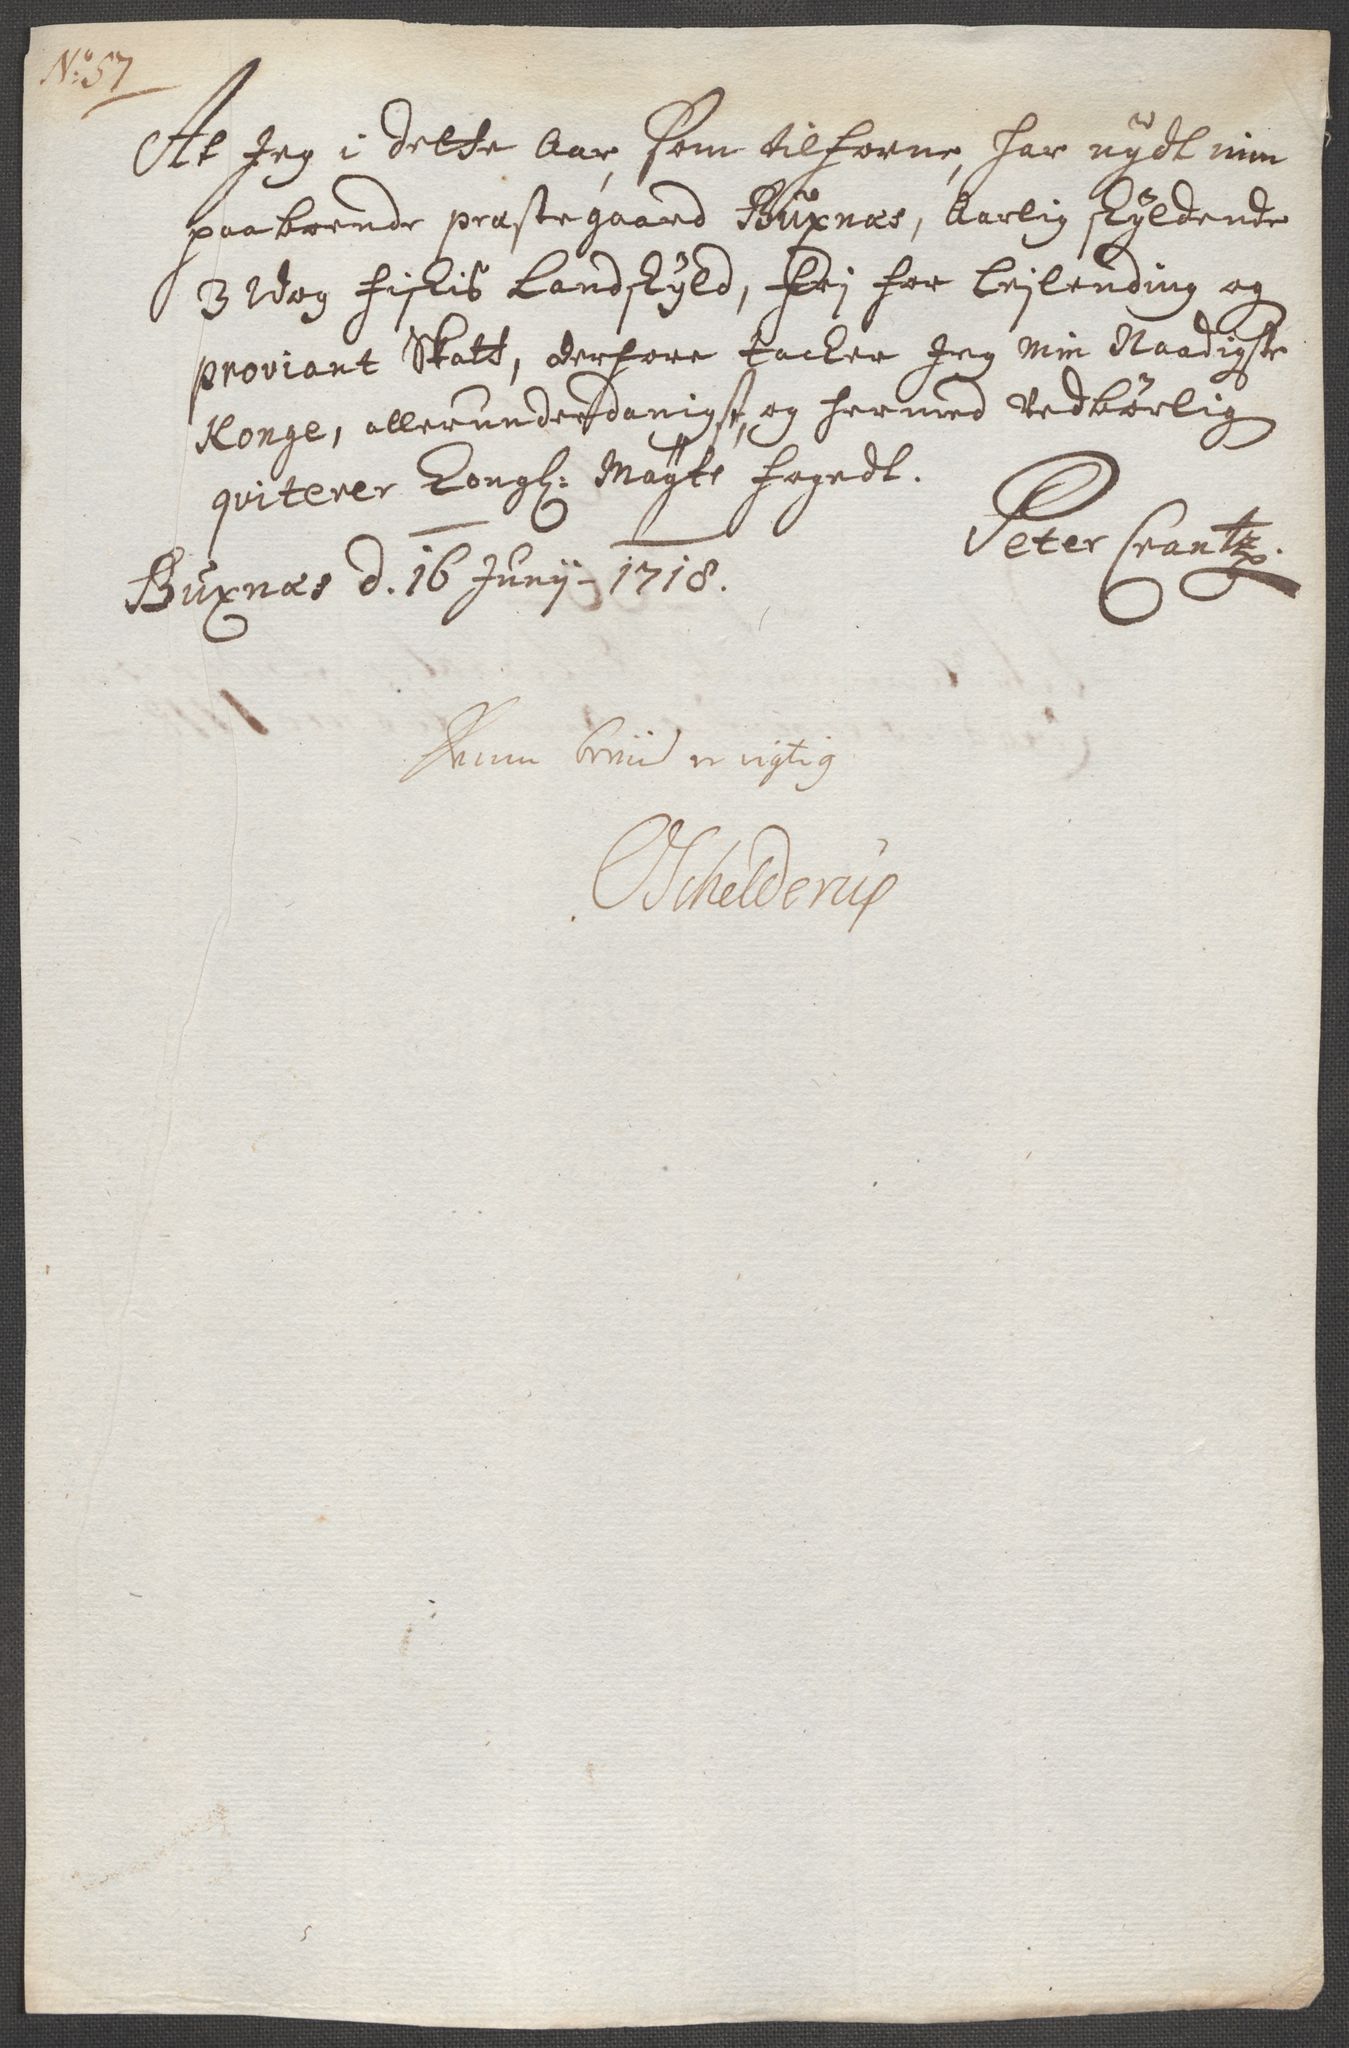 No: 57
At Jeg i dette Aar, som tilforne, har nÿdt min
paaboende præstegaard Buxnæs, Aarlig skÿldende
3 Wog fiskis Landskÿld, frj for Lejlending og
proviant Skatt, derfore tacker Jeg min Naadigste
Konge, allerunderdanigst, og hermed Vedbörlig
qviterer Kongl: Maÿts fogedt.
Peter Crantz.
Buxnæs d. 16 Junij 1718.
Denne beviis er rigtig
OSchelderup